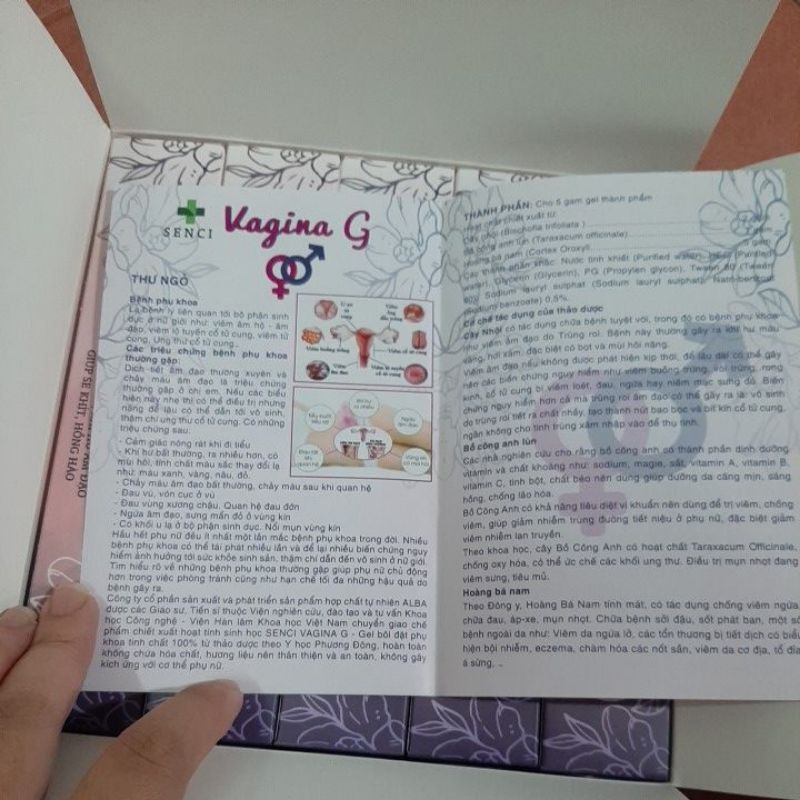 GIÚP SE KHÍT, HỒNG HÀO
SENCI
Vagina G
THƯ NGỎ
Bệnh phụ khoa
- Là bệnh lý liên quan tới bộ phận sinh
dục ở nữ giới như: viêm âm hộ - âm
đạo, viêm lộ tuyến cổ tử cung, viêm tử
cung, Ung thư cổ tử cung...
Các triệu chứng bệnh phụ khoa
thường gặp:
Dịch tiết âm đạo thường xuyên và
chảy máu âm đạo là triệu chứng
thường gặp ở chị em. Nếu các biểu
hiện này nhẹ thì có thể điều trị nhưng
nặng để lâu có thể dẫn tới vô sinh,
thậm chí ung thư cổ tử cung. Có những
triệu chứng sau:
- Cảm giác nóng rát khi đi tiểu
- Khí hư bất thường, ra nhiều hơn, có
mùi hôi, tính chất màu sắc thay đổi lạ
như: màu xanh, vàng, nâu, đỏ.
- Chảy máu âm đạo bất thường, chảy máu sau khi quan hệ
- Đau vú, vón cục ở vú
- Đau vùng xương chậu, Quan hệ đau đớn
- Ngứa âm đạo, sưng mẩn đỏ ở vùng kín
- Có khối u lạ ở bộ phận sinh dục. Nổi mụn vùng kín
Hầu hết phụ nữ đều ít nhất một lần mắc bệnh phụ khoa trong đời. Nhiều
bệnh phụ khoa có thể tái phát nhiều lần và để lại nhiều biến chứng nguy
hiểm ảnh hưởng tới sức khỏe sinh sản, thậm chí dẫn đến vô sinh ở nữ giới.
Tìm hiểu rõ về những bệnh phụ khoa thường gặp giúp phụ nữ chủ động
hơn trong việc phòng tránh cũng như hạn chế tối đa những hậu quả do
bệnh gây ra.
Công ty cổ phần sản xuất và phát triển sản phẩm hợp chất tự nhiên ALBA
được các Giáo sư, Tiến sĩ thuộc Viện nghiên cứu, đào tạo và tư vấn Khoa
học Công nghệ - Viện Hàn lâm Khoa học Việt Nam chuyển giao chế
phẩm chiết xuất hoạt tính sinh học SENCI VAGINA G - Gel bôi đặt phụ
khoa tinh chất 100% từ thảo dược theo Y học Phương Đông, hoàn toàn
không chứa hóa chất, hương liệu nên thân thiện và an toàn, không gây
kích ứng với cơ thể phụ nữ.
THÀNH PHẦN: Cho 5 gam gel thành phẩm
Hoạt chất chiết xuất từ:
Cây nhội (Bischofia trifoliata)
Bồ công anh lùn (Taraxacum officinale)
Hoàng bá nam (Cortex Oroxyli)
Các thành phần khác: Nước tinh khiết (Purified water)
water), Glycerin (Glycerin), PG (Propylen glycon), Tween 80 (Tween
80), Sodium lauryl sulphat (Sodium lauryl sulphat), Natri benzoat
(Sodium benzoate) 0,5%.
Cơ chế tác dụng của thảo dược
Cây Nhội có tác dụng chữa bệnh tuyệt vời, trong đó có bệnh phụ khoa
như viêm âm đạo do Trùng roi. Bệnh này thường gây ra khí hư màu
vàng, hơi xám, đặc biệt có bọt và mùi hôi nặng.
Viêm âm đạo nếu không được phát hiện kịp thời, để lâu dài có thể gây
nên các biến chứng nguy hiểm như viêm buồng trứng, vòi trứng, rong
kinh, cổ tử cung bị viêm loét, đau, ngứa hay niêm mạc sưng đỏ. Biến
chứng nguy hiểm hơn cả mà trùng roi âm đạo có thể gây ra là: vô sinh
do trùng roi tiết ra chất nhầy, tạo thành nút bao bọc và bít kín cổ tử cung,
ngăn không cho tinh trùng xâm nhập vào để thụ tinh.
Bồ công anh lùn
Các nhà nghiên cứu cho rằng bồ công anh có thành phần dinh dưỡng,
vitamin và chất khoáng như: sodium, magie, sắt, vitamin A, vitamin B,
vitamin C, tinh bột, chất béo nên dùng giúp dưỡng da căng mịn, sáng
hồng, chống lão hóa.
Bồ Công Anh có khả năng tiêu diệt vi khuẩn nên dùng để trị viêm, chống
viêm, giúp giảm nhiễm trùng đường tiết niệu ở phụ nữ, đặc biệt giảm
viêm nhiễm lan truyền.
Theo khoa học, cây Bồ Công Anh có hoạt chất Taraxacum Officinale,
chống oxy hóa, có thể ức chế các khối ung thư. Điều trị mụn nhọt đang
viêm sưng, tiêu mủ.
Hoàng bá nam
Theo Đông y, Hoàng Bá Nam tính mát, có tác dụng chống viêm ngứa,
chữa đau, áp-xe, mụn nhọt. Chữa bệnh sởi đậu, sốt phát ban, một số
bệnh ngoài da như: Viêm da ngứa lở, các tổn thương bị tiết dịch có biểu
hiện bội nhiễm, eczema, chàm hóa các nốt sẩn, viêm da cơ địa, tổ đỉa
á sừng, ..